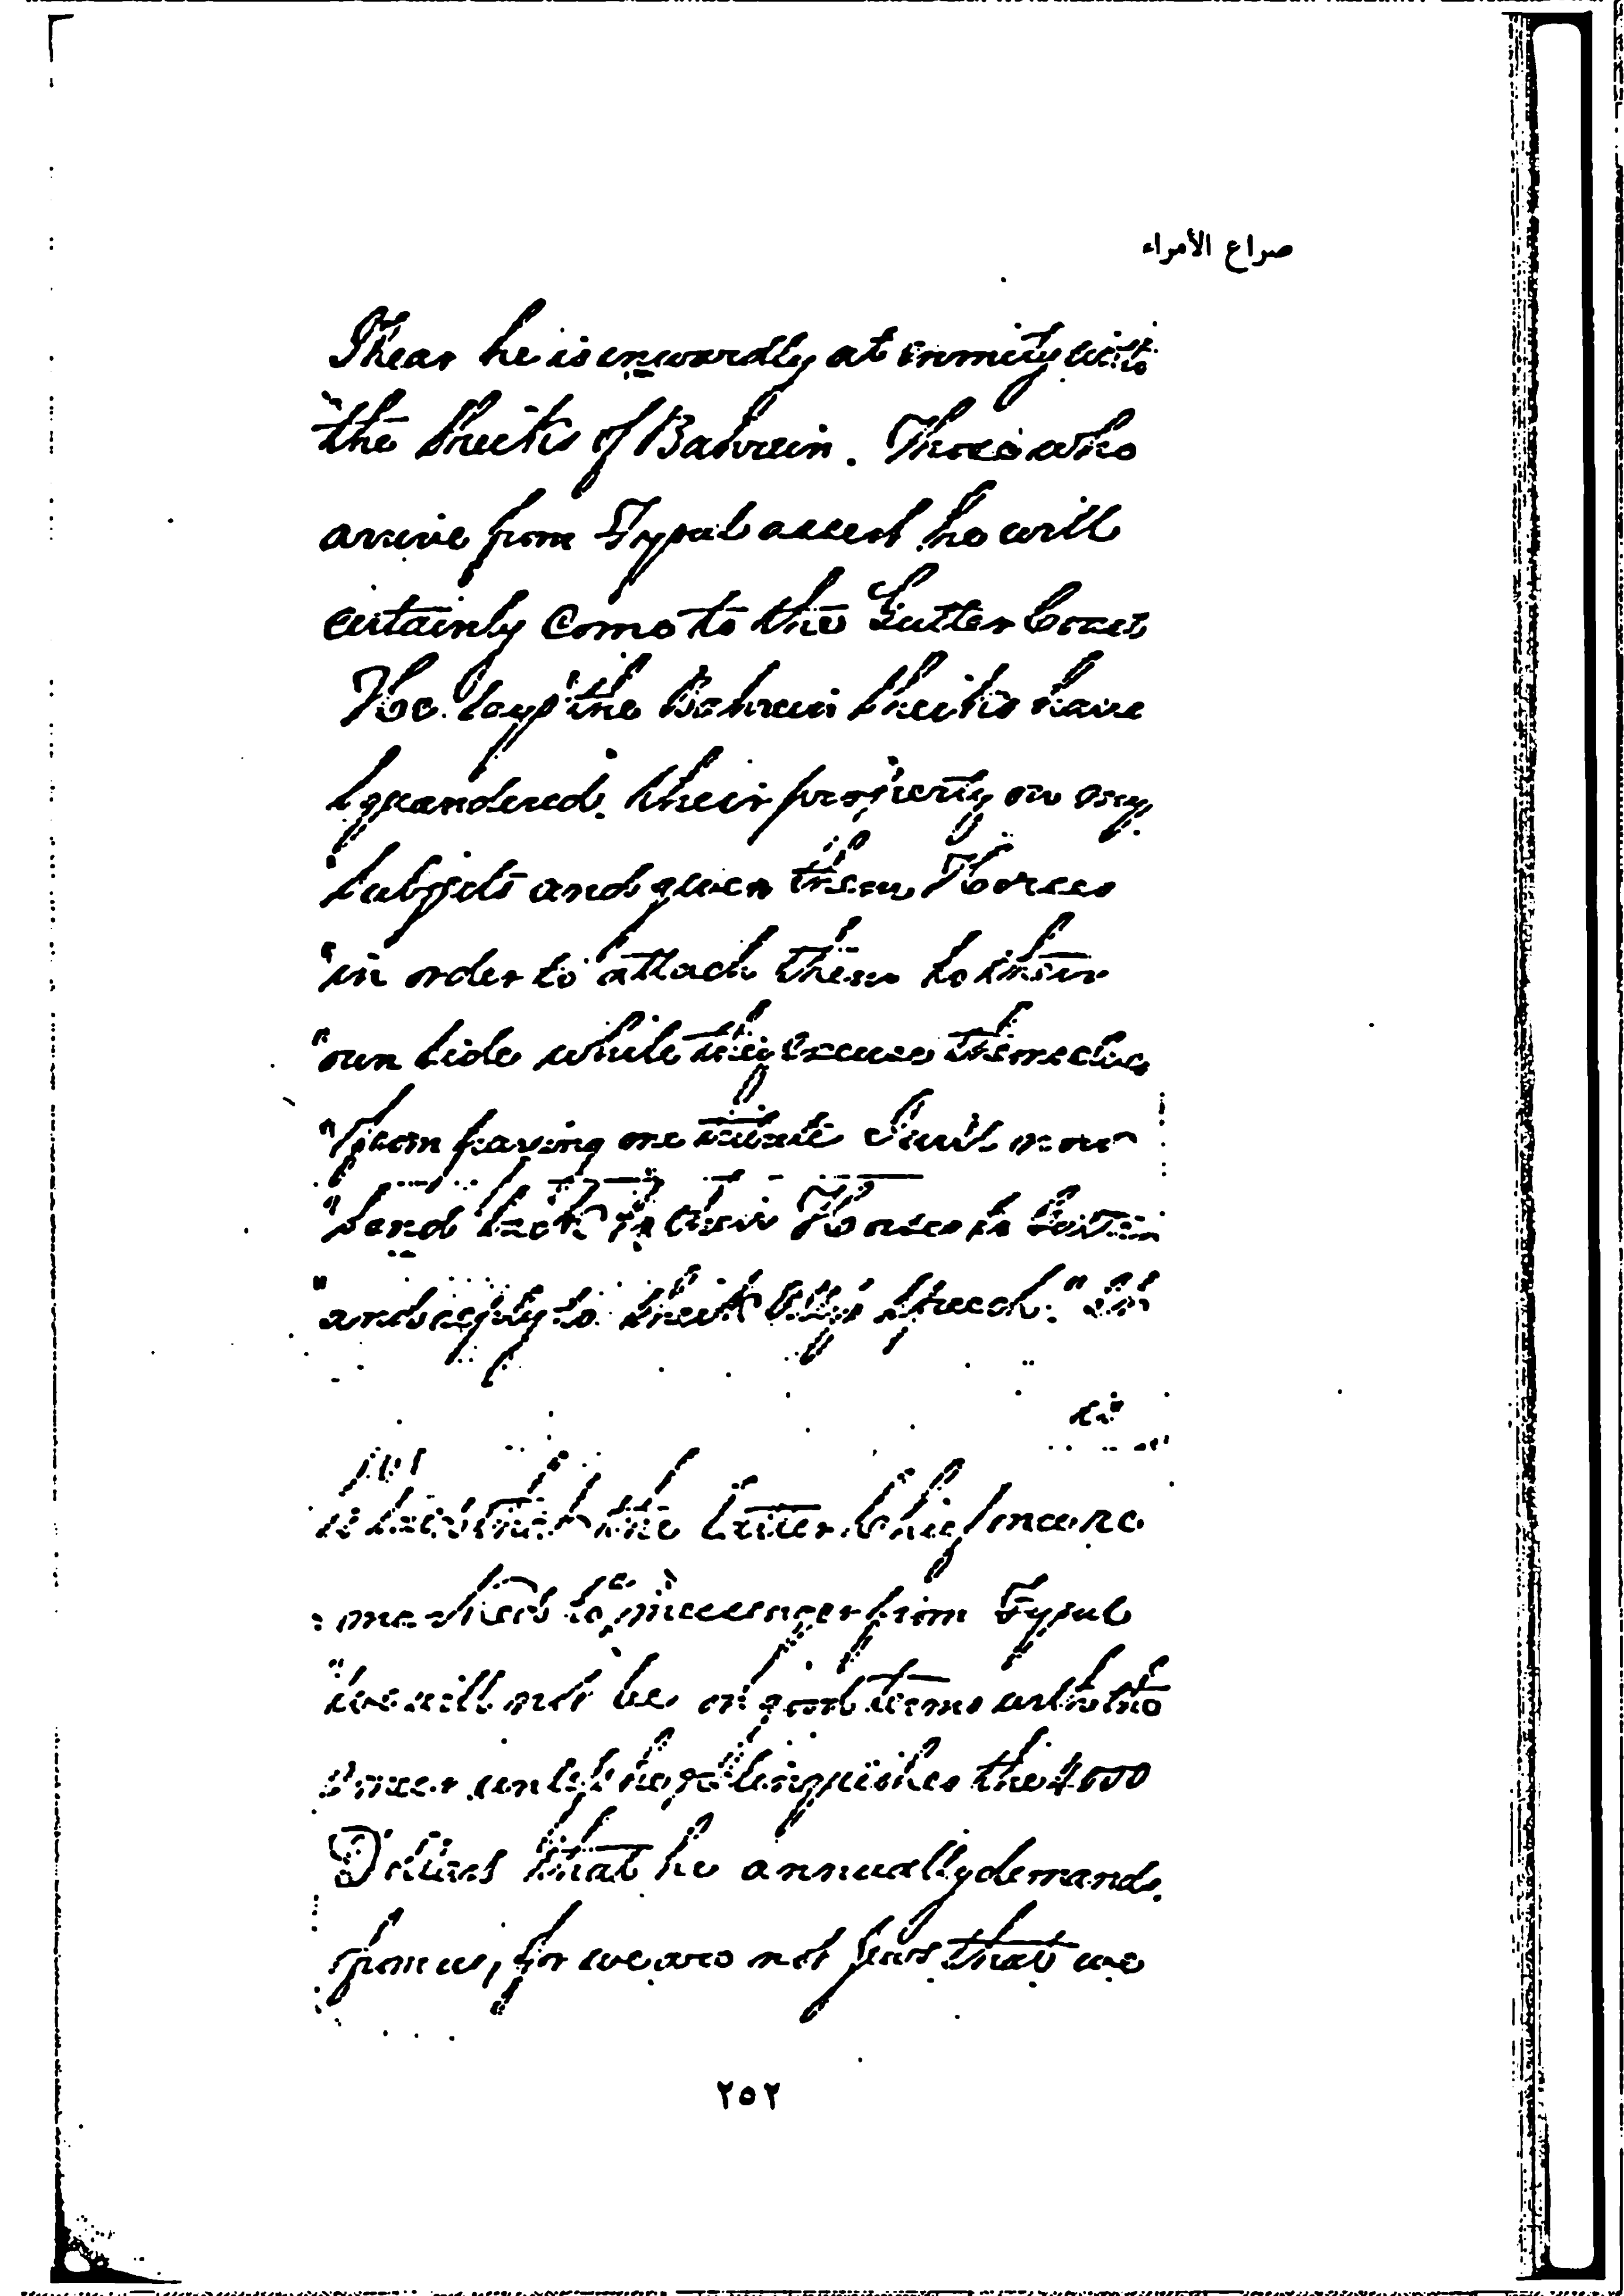 صراع الأمراء
I hear he is inwardly at enmity with
"the Sheiks of Bahrein. Those who
arrive from Fysul assert he will
certainly come to the Gutter Coast
He says "the Bahrein Sheiks have
squandered their property on my
"subjects and given them Horses
"in order to attach them to their
"own side while they excuse themselves
"from paying me tribute I will now
"send back their Horses to
"and reply to Sheik speech."
that the latter Chief
messenger from Fysul
"we will not be on good terms with the
until he relinquishes the 4000
Dollars that he annually demands
from us, for we are not that we
٢٥٢